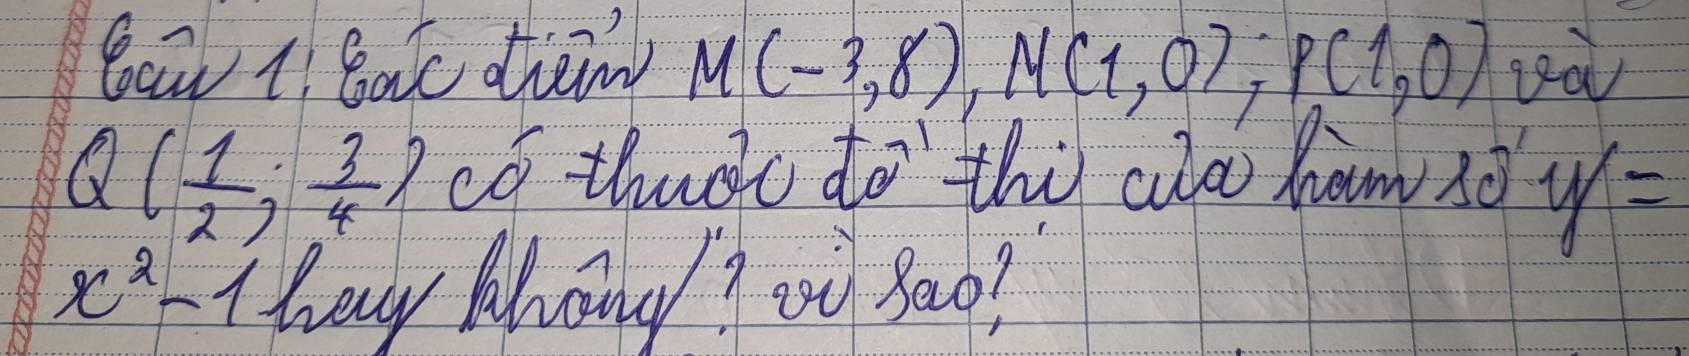 Câu 1: Các điểm M(-3,8), N(1,0); P(1,0) và
Q(1/2; 3/4) có thuộc đồ thị của hàm số y =
x² - 1 hay không? vì sao?